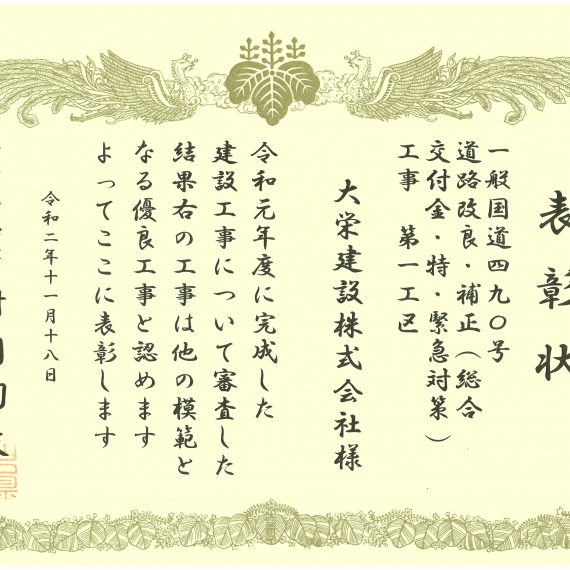 表彰状
一般国道四九〇号
道路改良・補正(総合
交付金・特・緊急対策)
工事 第一工区
大栄建設株式会社様
令和元年度に完成した
建設工事について審査した
結果右の工事は他の模範と
なる優良工事と認めます
よってここに表彰します
令和二年十一月十八日